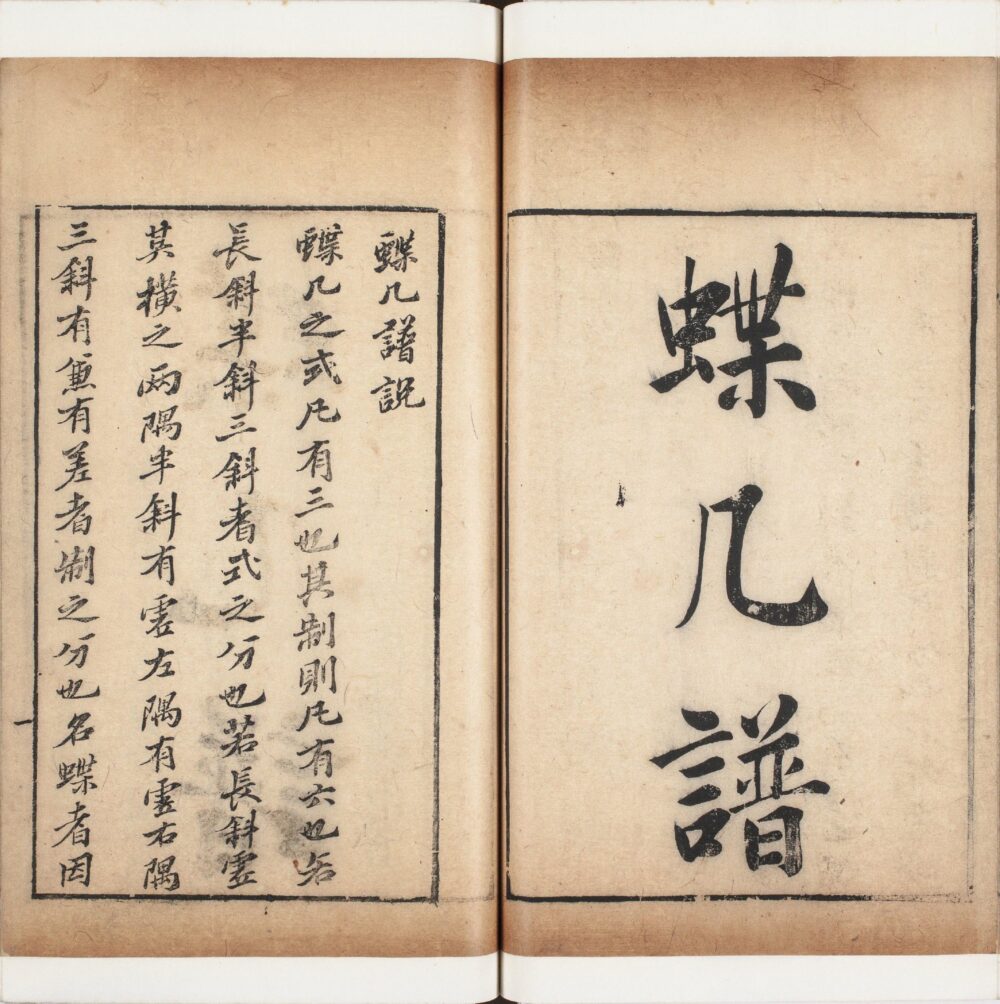 蝶几譜
蝶几譜説
蝶几之式凡有三也其制則凡有六也若
長斜半斜三斜者式之分也若長斜虛
其橫之兩隅半斜有虛左隅有虛右隅
三斜有兼有差者制之分也名蝶者因
一